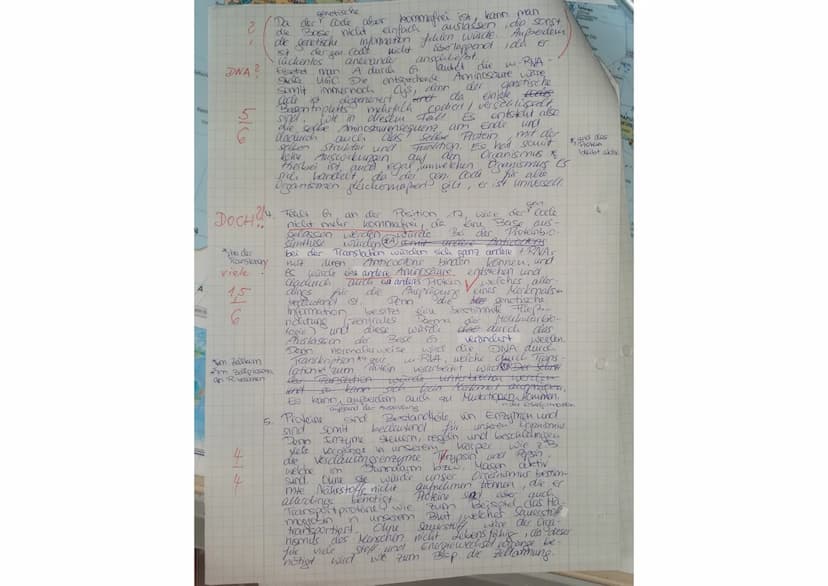 genetische
Da der Code aber kommafrei ist, kann man
die Base nicht einfach auslassen, da sonst
die genetische Information fehlen würde. Außerdem
ist der gen. Code nicht überlappend, der er
lückenlos aneinander anschließt.
DNA?
Ersetzt man A durch G lautet die m-RNA-
Stelle UGC. Die entsprechende Aminosäure wäre
somit immernoch Cys, denn der genetische
Code ist degeneriert da einige
Basentripletts mehrfach codiert / verschlüsselt
sind, wie in diesem Fall. Es entsteht also
5
6
die selbe Aminosäuresequenz am Ende und
dadurch auch das selbe Protein mit der
selben Struktur und Funktion. Es hat somit
keine Auswirkungen auf den Organismus *
* und das Protein bleibt
ist auch egal, um welchen Organismus es
sich handelt, da der gen. Code für alle
Organismen gleichermaßen gilt, er ist universell.
DOCH?!
4. Fehlt G an der Position 12, wäre der gen. Code
nicht mehr kommafrei, da eine Base aus-
gelassen werden würde. Bei der Proteinbio-
synthese würden
bei der Translation würden sich ganz andere t-RNAs
* bei der Translation
mit ihren Anticodons binden können, und
viele!
es würde andere Aminosäure entstehen und
dadurch auch ein anderes Protein, welches aller-
1,5
6
dings für die Ausprägung eines Merkmals
verantwortlich ist. Denn die genetische
Information besitzt eine bestimmte Fließ-
richtung (zentrales Dogma der Molekularbio-
logie) und diese würde durch das
Auslassen der Base G verändert werden.
Denn normalerweise wird die DNA durch
Transkription zur m-RNA, welche durch Trans-
*¹im Zellkern
*²im Zellplasma
an Ribosomen
lation zum Protein verarbeitet wird.
Es kann außerdem auch zu Mutationen kommen.
aufgrund der Auslassung
5. Proteine sind Bestandteile von Enzymen und
sind somit bedeutend für unseren Organismus.
Denn Enzyme steuern, regeln und beschleunigen
viele Vorgänge in unserem Körper wie z.B.
4
4
die Verdauungsenzyme Trypsin und Pepsin,
welche im Dünndarm bzw. Magen aktiv
sind. Ohne sie würde unser Organismus bestimm-
te Nährstoffe nicht aufnehmen können, die er
allerdings benötigt. Proteine sind aber auch
Transportproteine wie zum Beispiel das Hä-
moglobin in unserem Blut, welches Sauerstoff
transportiert. Ohne Sauerstoff wäre der Orga-
nismus des Menschen nicht lebensfähig, da dieser
für viele Stoff und Energiewechselvorgänge be-
nötigt wird wie zum Bsp. die Zellatmung.